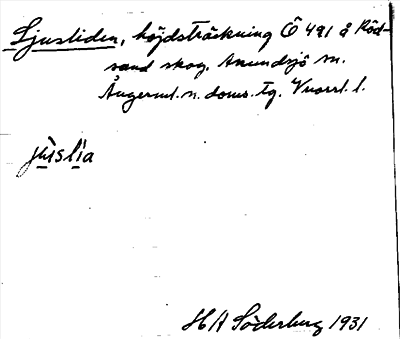 Ljusliden, höjdsträckning Ö 491 å Röd-
sand skog. Anundsjö sn.
Ångerml. n. doms. tg. Vnorrl. l.
jùslìa
HA Söderberg 1931